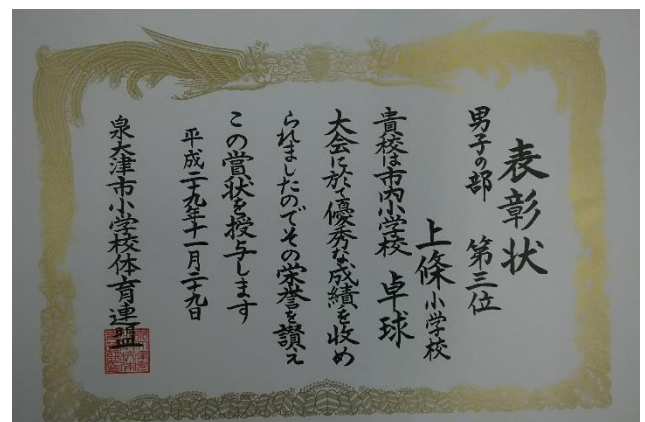 表彰状
男子の部 第三位
上條小学校
貴校は市内小学校 卓球
大会に於て優秀な成績を收め
られましたのでその栄誉を讃え
この賞状を授与します
平成二十九年十一月二十九日
泉大津市小学校体育連盟